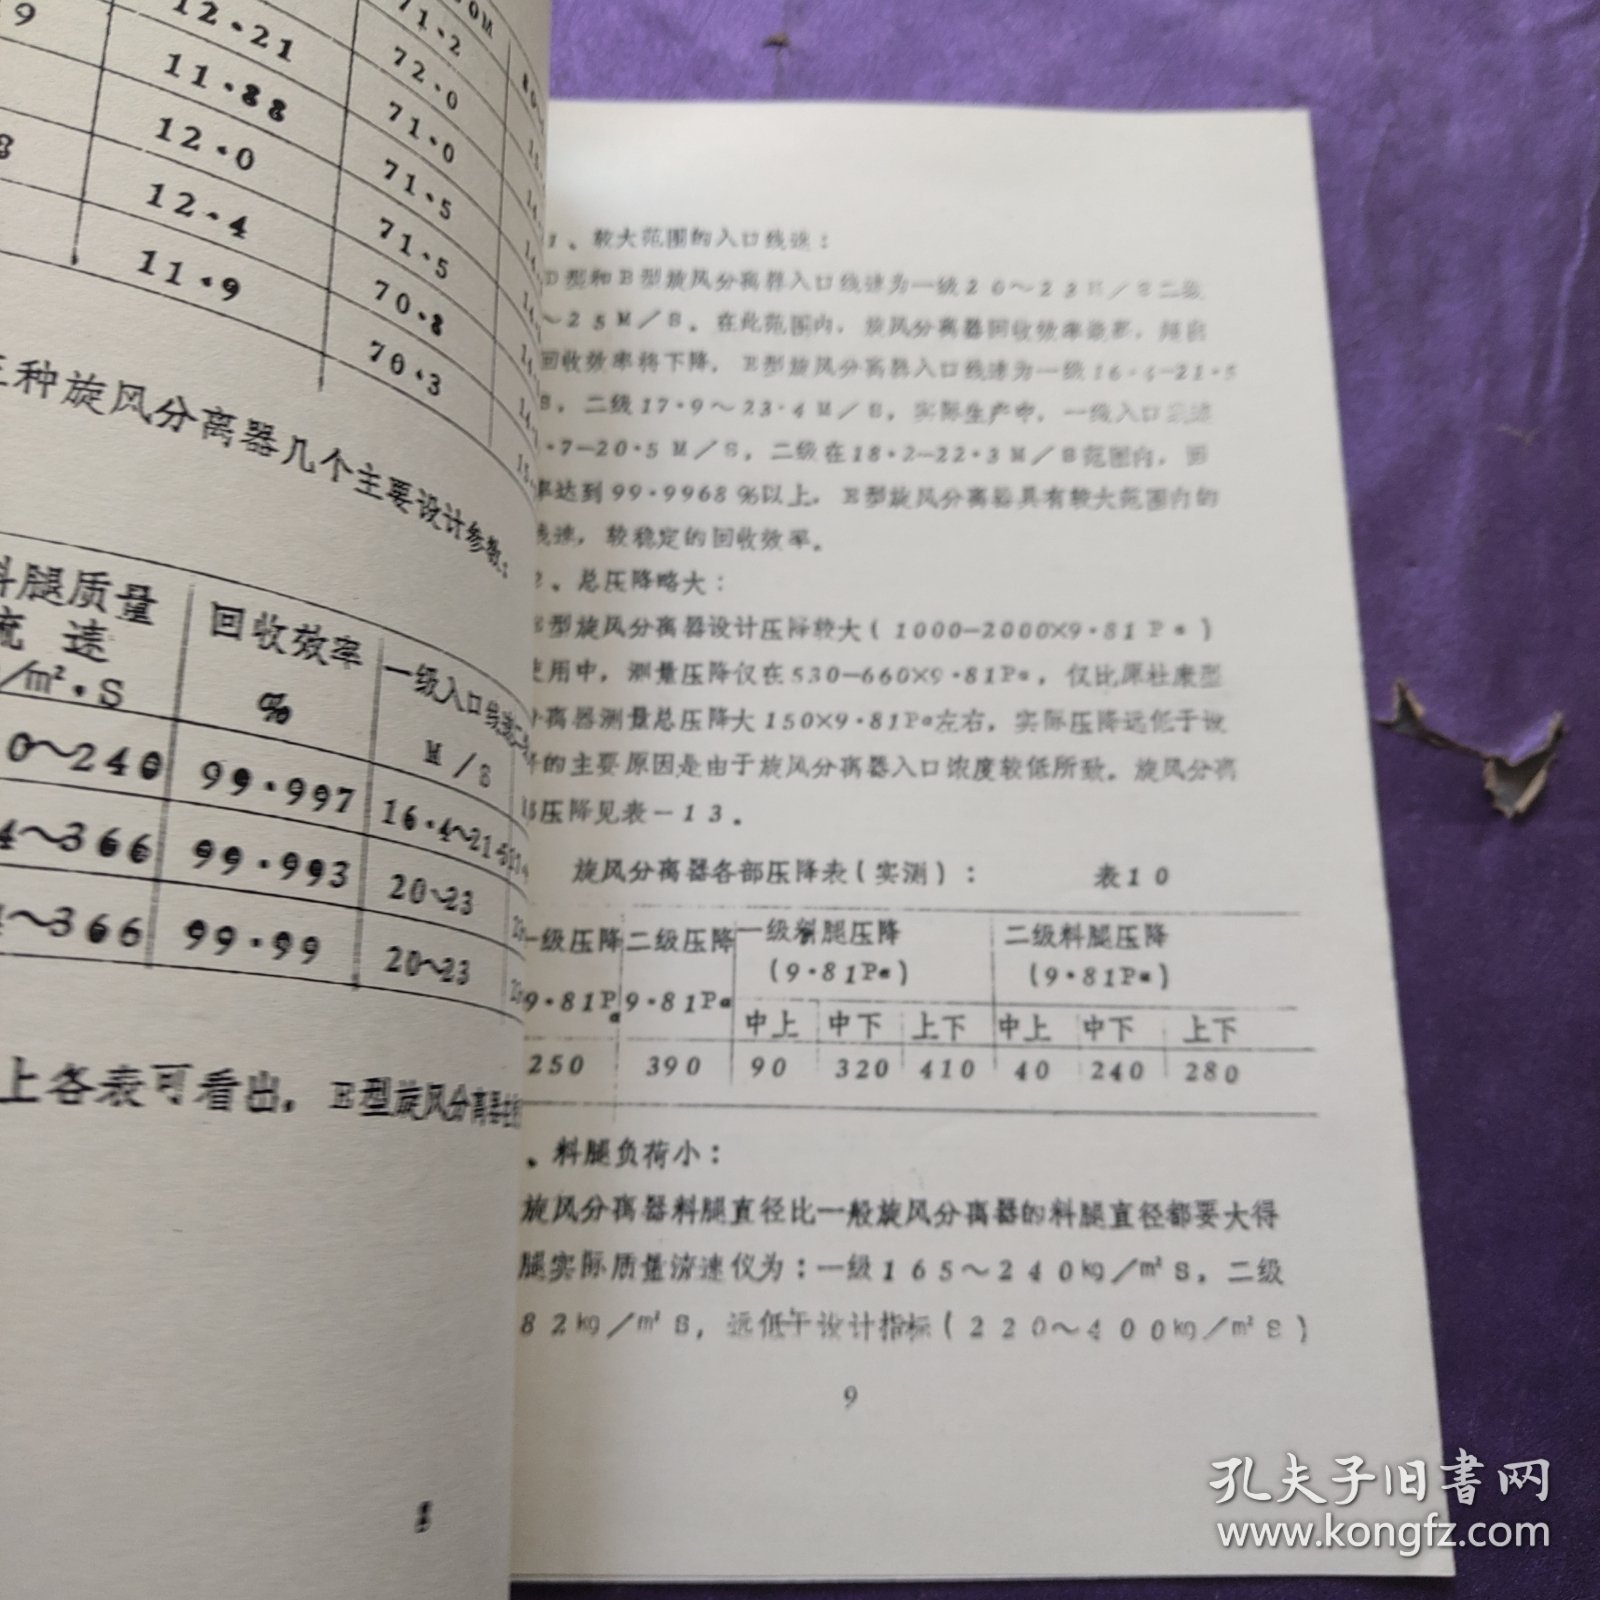 9
12.21
11.88
12.0
12.4
11.9
71.2
72.0
71.0
71.5
71.5
70.8
70.3
种旋风分离器几个主要设计参数：
料腿质量
流 速
/m².S
回收效率
%
一级入口线速
M/S
0～240
99.997
16.4～21.5
4～366
99.993
20～23
4～366
99.99
20～23
上各表可看出，E型旋风分离器
8
1、较大范围的入口线速：
D型和B型旋风分离器入口线速为一级20～23M/S二级
～25M/S。在此范围内，旋风分离器回收效率最高，
回收效率将下降，E型旋风分离器入口线速为一级16.4—21.5
S，二级17.9～23.4M/S，实际生产中，一级入口线速
.7—20.5M/S，二级在18.2—22.3M/S范围内，
率达到99.9968%以上，E型旋风分离器具有较大范围内的
线速，较稳定的回收效率。
2、总压降略大：
E型旋风分离器设计压降较大(1000—2000×9.81Pa)
使用中，测量压降仅在530—660×9.81Pa，仅比原杜康型
分离器测量总压降大150×9.81Pa左右，实际压降远低于设
的主要原因是由于旋风分离器入口浓度较低所致。旋风分离
压降见表—13。
旋风分离器各部压降表(实测)： 表10
一级压降 二级压降 一级料腿压降 二级料腿压降
9.81Pa 9.81Pa (9.81Pa) (9.81Pa)
中上 中下 上下 中上 中下 上下
250 390 90 320 410 40 240 280
、料腿负荷小：
旋风分离器料腿直径比一般旋风分离器的料腿直径都要大得
腿实际质量流速仅为：一级165～240kg/m²S，二级
82kg/m²S，远低于设计指标(220～400kg/m²S)
9
孔夫子旧书网
www.kongfz.com